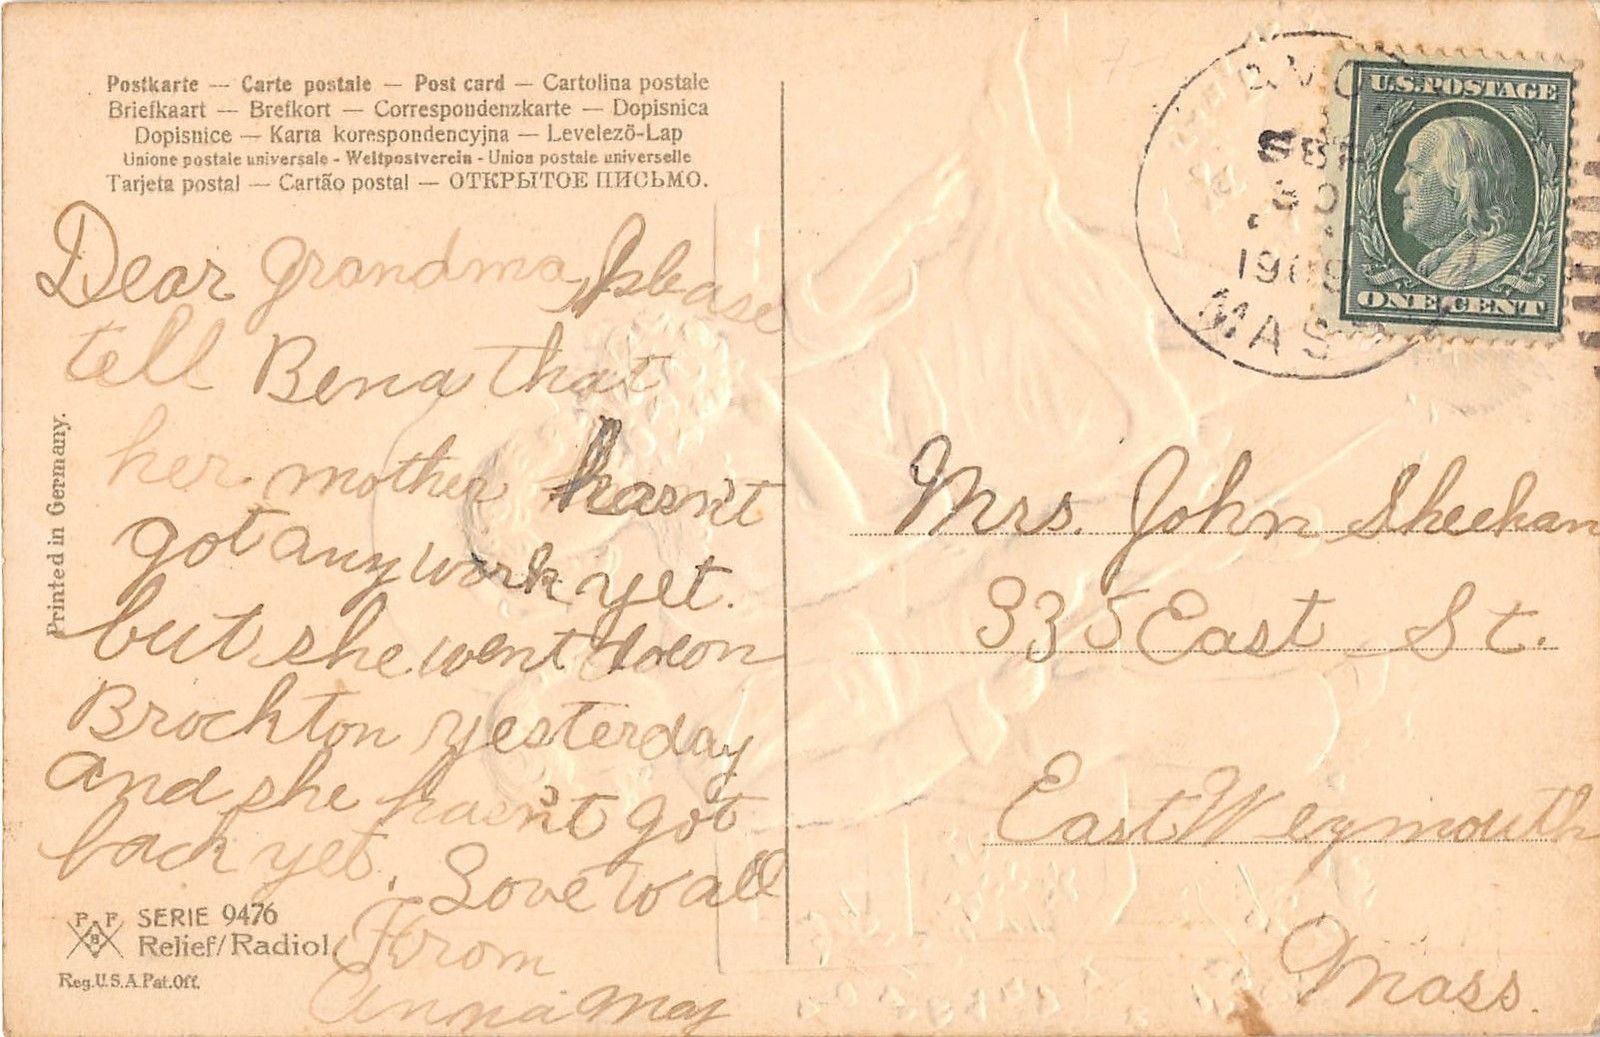 Postkarte — Carte postale — Post card — Cartolina postale
Briefkaart — Brefkort — Correspondenzkarte — Dopisnica
Dopisnice — Karta korespondencyjna — Levelező-Lap
Unione postale universale - Weltpostverein - Union postale universelle
Tarjeta postal — Cartão postal — ОТКРЫТОЕ ПИСЬМО.
Dear grandma, please
tell Bena that
her mother hasn't
got any work yet.
but she went down
Brockton yesterday
and she hasn't got
back yet. Love to all
From
Anna May
Printed in Germany.
P F
B
SERIE 9476
Relief/Radiol
Reg. U.S.A. Pat. Off.
U.S. POSTAGE
ONE CENT
SEP
30
1909
MASS
Mrs. John Sheehan
335 East St.
East Weymouth
Mass.